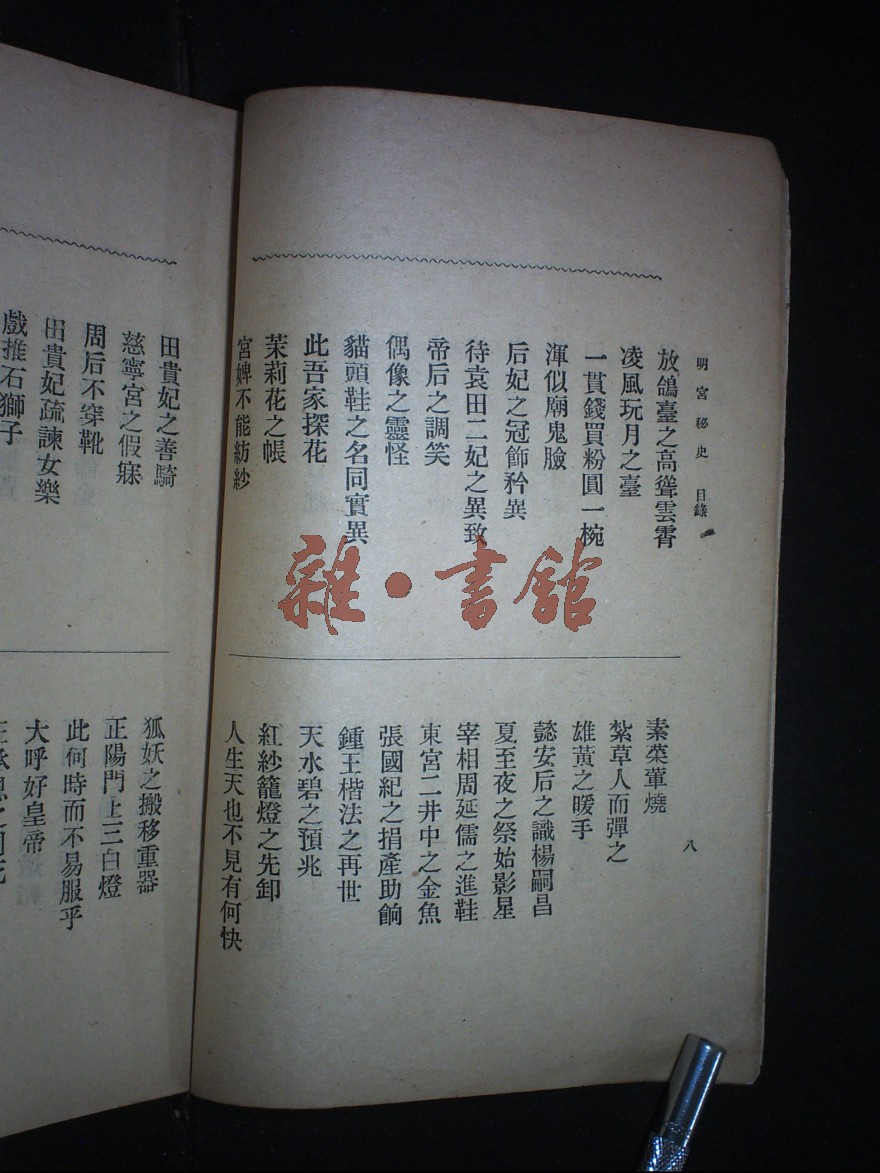 明宮秘史 目錄
放鴿臺之高聳雲霄
凌風玩月之臺
一貫錢買粉圓一椀
渾似廟鬼臉
后妃之冠飾矜異
待袁田二妃之異致
帝后之調笑
偶像之靈怪
貓頭鞋之名同實異
此吾家探花
茉莉花之帳
宮婢不能紡紗
素菜葷燒
紮草人而彈之
雄黃之暖手
懿安后之識楊嗣昌
夏至夜之祭始影星
宰相周延儒之進鞋
東宮二井中之金魚
張國紀之捐產助餉
鍾王楷法之再世
天水碧之預兆
紅紗籠燈之先卸
人生天也不見有何快
八
田貴妃之善騎
慈寧宮之假寐
周后不穿靴
田貴妃疏諫女樂
戲推石獅子
狐妖之搬移重器
正陽門上三白燈
此何時而不易服乎
大呼好皇帝
雜·書館